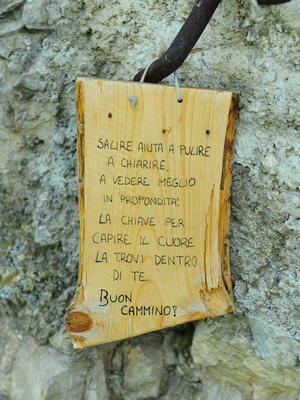 SALIRE AIUTA A PULIRE
A CHIARIRE,
A VEDERE MEGLIO
IN PROFONDITA:
LA CHIAVE PER
CAPIRE IL CUORE
LA TROVI DENTRO
DI TE.
BUON
CAMMINO!